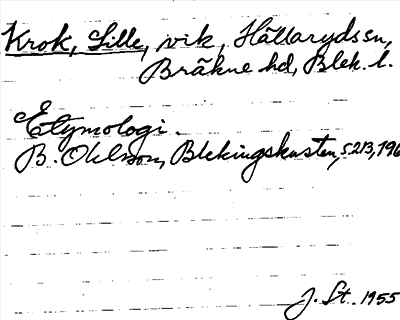 Krok, Lille, vik, Hällarydssn,
Bräkne hd, Blek. l.
Etymologi.
B. Ohlsson, Blekingskusten, s. 213, 196
J. St. 1955